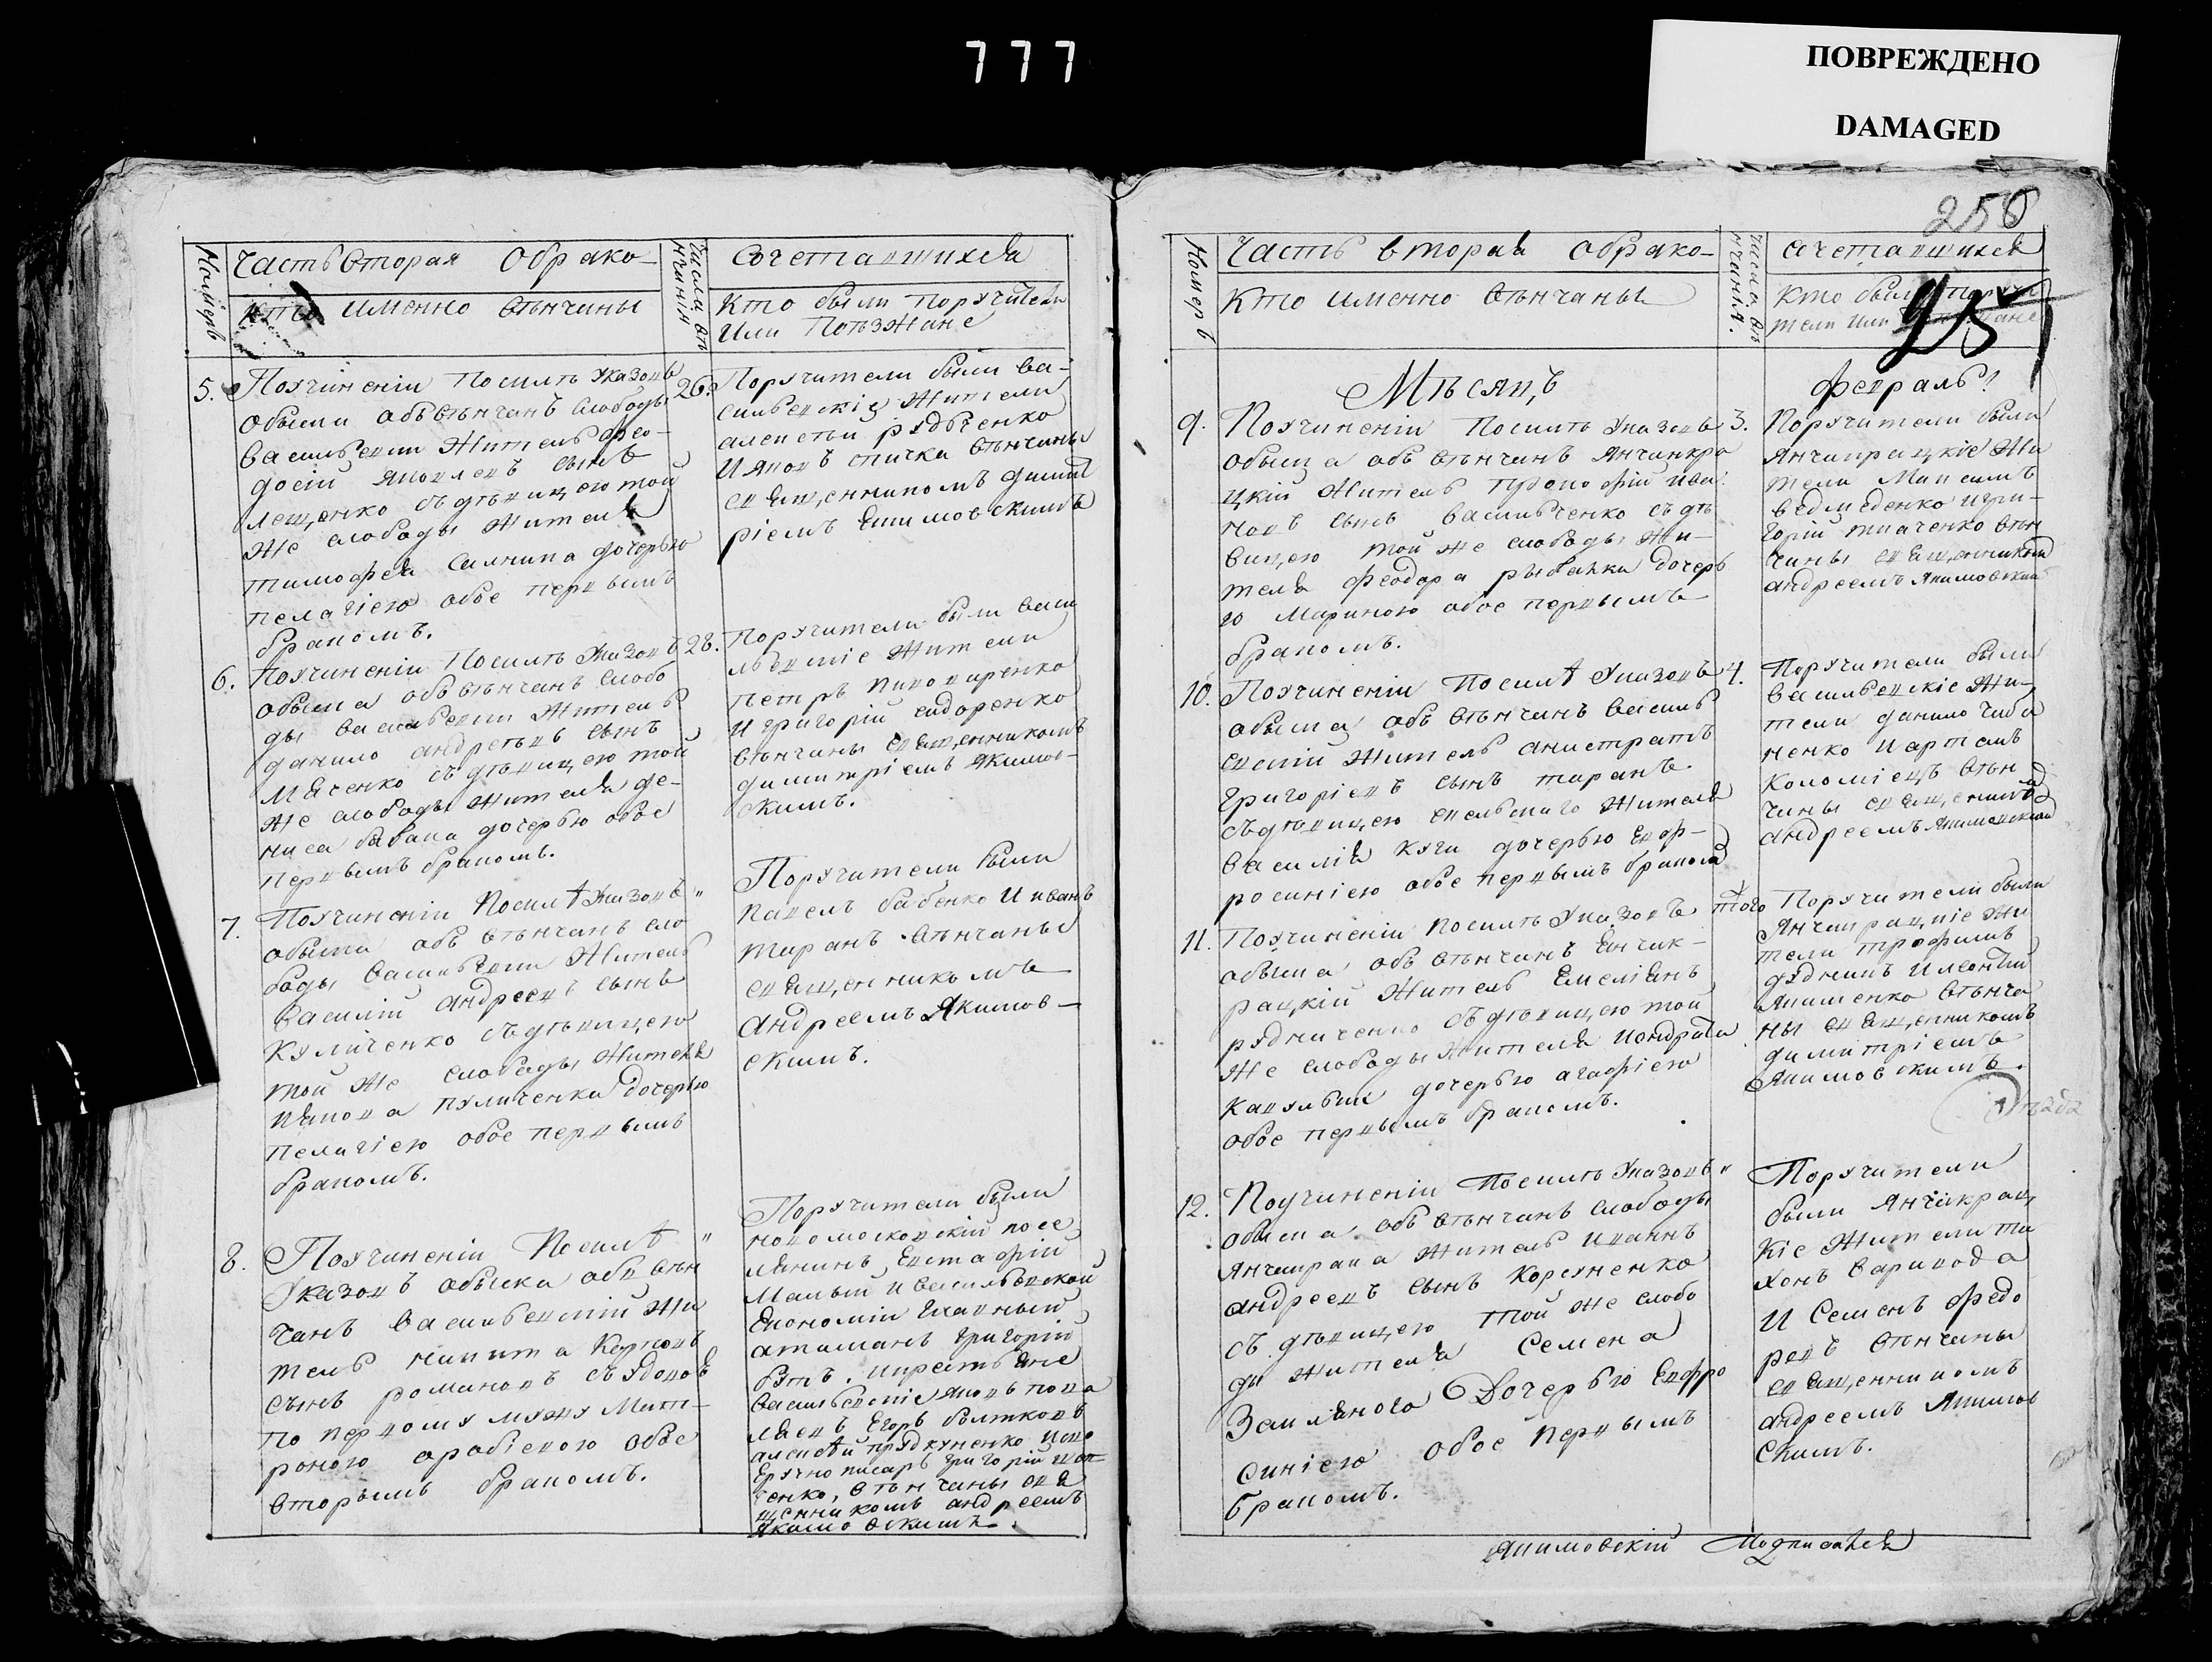 777
ПОВРЕЖДЕНО
DAMAGED
Часть Вторая Обрако-
Сочетавшихся
Кто именно Вѣнчаны
Кто были Поручители
Или Поѣзжане
5. Поучиненіи Посилѣ Указовъ 26.
Обыска обвѣнчанъ Слободы
Васильевки Житель Фео-
досій Яковлевъ Сынъ
Лещенко съ дѣвицею той
Же слободы Жителя
Тимофея дочерью
Пелагіею обое первымъ
бракомъ.
Поручители были Ва-
сильевскіе Жители
Алексей рябченко
И Яковъ спичка Вѣнчаны
священникомъ Димит
ріемъ Екимовскимъ
6. Поучиненіи Посилѣ Указовъ 28.
обыска обвѣнчанъ Слобо
ды Васильевки Житель
данило андреевъ Сынъ
съ дѣвицею той
Же слободы Жителя де-
ниса бабака дочерью обое
первымъ бракомъ.
Поручители были Васи
льевскіе Жители
Петръ
И Григорій сидоренко
Вѣнчаны священникомъ
димитріемъ Якимов-
скимъ.
7. Поучиненіи Посилѣ Указовъ "
обыска обвѣнчанъ сло
боды Васильевки Житель
Василій андреевъ Сынъ
Куличенко съ дѣвицею
той Же слободы Жителя
Якова Куличенка дочерью
Пелагіею обое первымъ
бракомъ.
Поручители были
Павелъ бабенко И иванъ
таранъ Вѣнчаны
священникомъ
Андреемъ Якимов-
скимъ.
8. Поучиненіи Посилѣ "
Указовъ обыска обвѣн
чанъ Васильевскій Жи
тель никита Карповъ
сынъ романовъ съ Вдовою
по первому мужу Мат-
роною обое
Вторымъ бракомъ.
Поручители были
новомосковскій посе
лянинъ Евстафій
Малый и Васильевской
Економіи Главный
атаманъ Григорій
Васильевскіе
Егоръ болтковъ
писарь Григорій
Вѣнчаны свя
щенникомъ андреемъ
Якимовскимъ.
256
Номеръ
Часть вторая обрако-
сочетавшихся
Кто именно Вѣнчаны
95
Мѣсяцъ
Февраль!
9. Поучиненіи Посилѣ Указовъ 3.
обыска обвѣнчанъ Янчикра
цкій Житель Прокофій Ива
новъ Сынъ Васильченко съ дѣ
вицею той же слободы Жи-
теля Феодора рыбалки дочерь
ю Мариною обое первымъ
бракомъ.
Поручители были
Янчикрацкіе Жи
тели Максимъ
ведмеденко и Гри-
горій ткаченко Вѣн
чаны священникомъ
андреемъ Якимовским
10. Поучиненіи Посилѣ Указовъ 4.
обыска обвѣнчанъ Василь
евскій Житель
Григоріевъ сынъ таранъ
съ дѣвицею Жителя
Василія Куги дочерью Евф-
росиніею обое первымъ браком
Поручители были
Васильевскіе Жи-
тели данило Чиба
ненко и артемъ
Коломіецъ Вѣн
чаны священником
андреемъ Якимовским
11. Поучиненіи Посилѣ Указовъ того
обыска обвѣнчанъ Янчик-
рацкій Житель Емеліянъ
рудниченко съ дѣвицею той
Же слободы Жителя Кондрата
дочерью агафіею
обое первымъ бракомъ.
Поручители были
Янчикрацкіе Жи
тели трофимъ
и леонтій
Якименко Вѣнча
ны священникомъ
димитріемъ
Якимовскимъ.
12. Поучиненіи Посилѣ Указовъ "
обыска обвѣнчанъ Слободы
Янчикрака Житель Иванъ
андреевъ сынъ Корсуненко
съ дѣвицею той же слобо
ды Жителя Семена
Дочерью Евфро
синіею обое первымъ
бракомъ.
Поручители
были Янчикрац
кіе Жители ти
хонъ Варивода
И Семенъ Федо
ровъ Вѣнчаны
священникомъ
андреемъ Якимов
скимъ.
Якимовскій Подписался